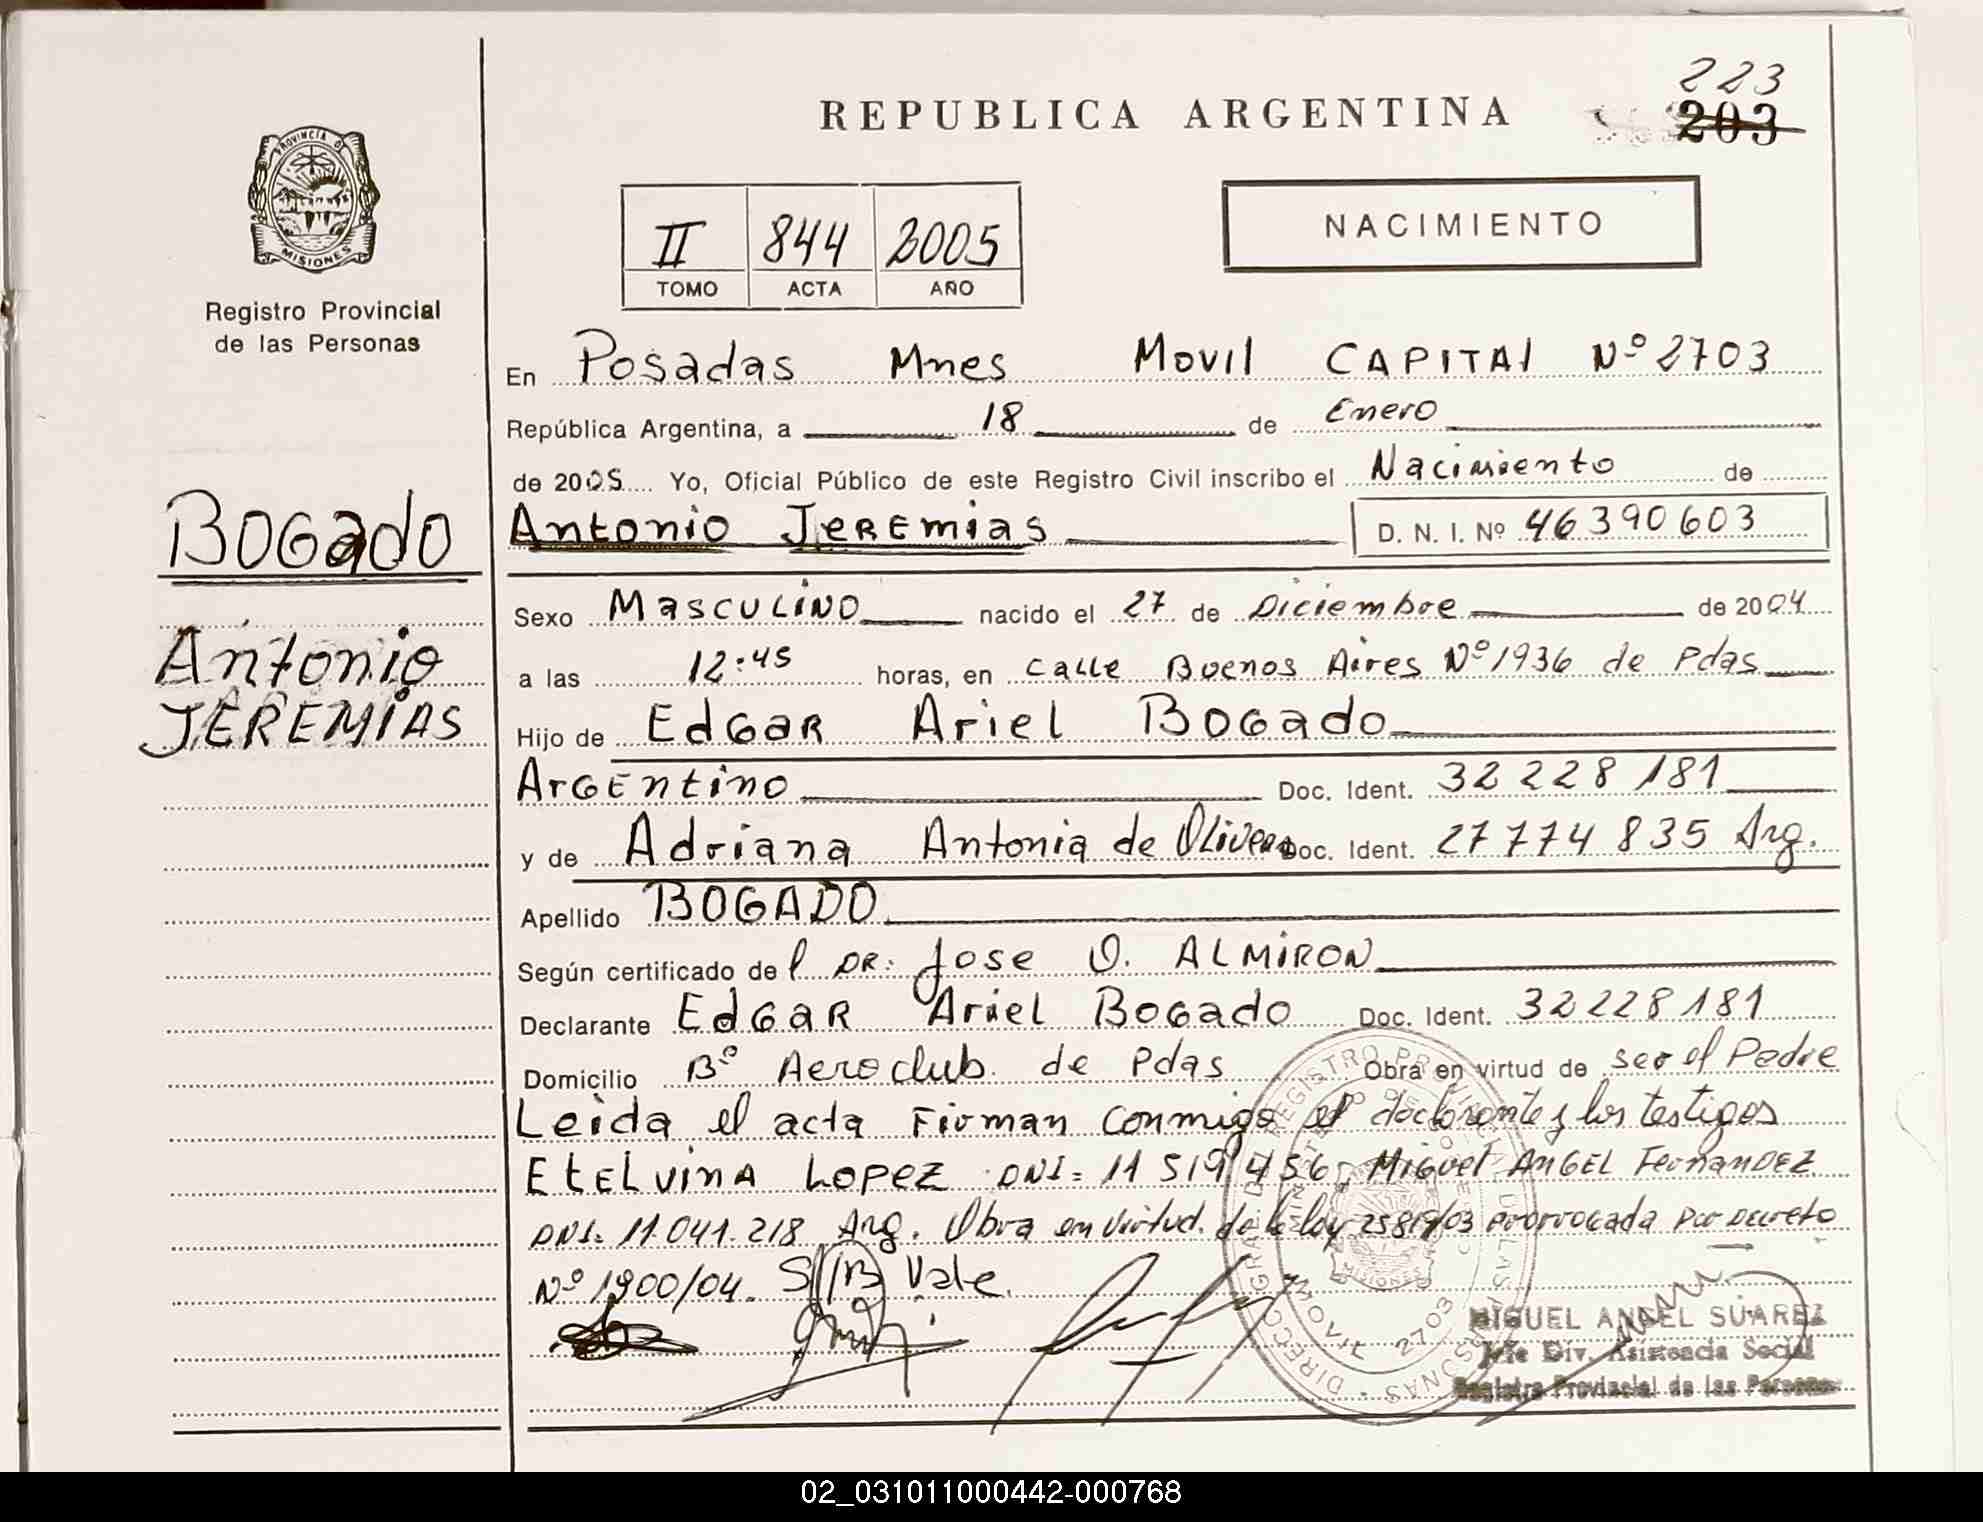 223
REPUBLICA ARGENTINA
203
PROVINCIA DE
MISIONES
Registro Provincial
de las Personas
II 844 2005
TOMO ACTA AÑO
NACIMIENTO
En Posadas Mnes Movil CAPITAl Nº 2703
República Argentina, a 18 de Enero
de 2005 Yo, Oficial Público de este Registro Civil inscribo el Nacimiento de
Antonio Jeremias D. N. I. Nº 46 390 603
Bogado
Antonio
JEREMIAS
Sexo Masculino nacido el 27 de Diciembre de 2004
a las 12:45 horas, en calle Buenos Aires Nº 1936 de Pdas
Hijo de Edgar Ariel Bogado
Argentino Doc. Ident. 32 228 181
y de Adriana Antonia de Olivera Doc. Ident. 27 774 835 Arg.
Apellido BOGADO
Según certificado del DR: Jose O. ALMIRON
Declarante Edgar Ariel Bogado Doc. Ident. 32 228 181
Domicilio Bº Aeroclub de Pdas Obra en virtud de ser el Padre
Leida el acta Firman conmigo el declarante y los testigos
Etelvina Lopez DNI: 11 519 456, Miguel Angel Fernandez
DNI: 11.041.218 Arg. Obra en virtud de la ley 25819/03 prorrogada por Decreto
Nº 1900/04. S/B Vale
DIRECC. GRAL. DEL REGISTRO PROVINCIAL DE LAS PERSONAS
MISIONES
MOVIL 2703
MIGUEL ANGEL SUAREZ
Jefe Div. Asistencia Social
Registro Provincial de las Personas
02_031011000442-000768